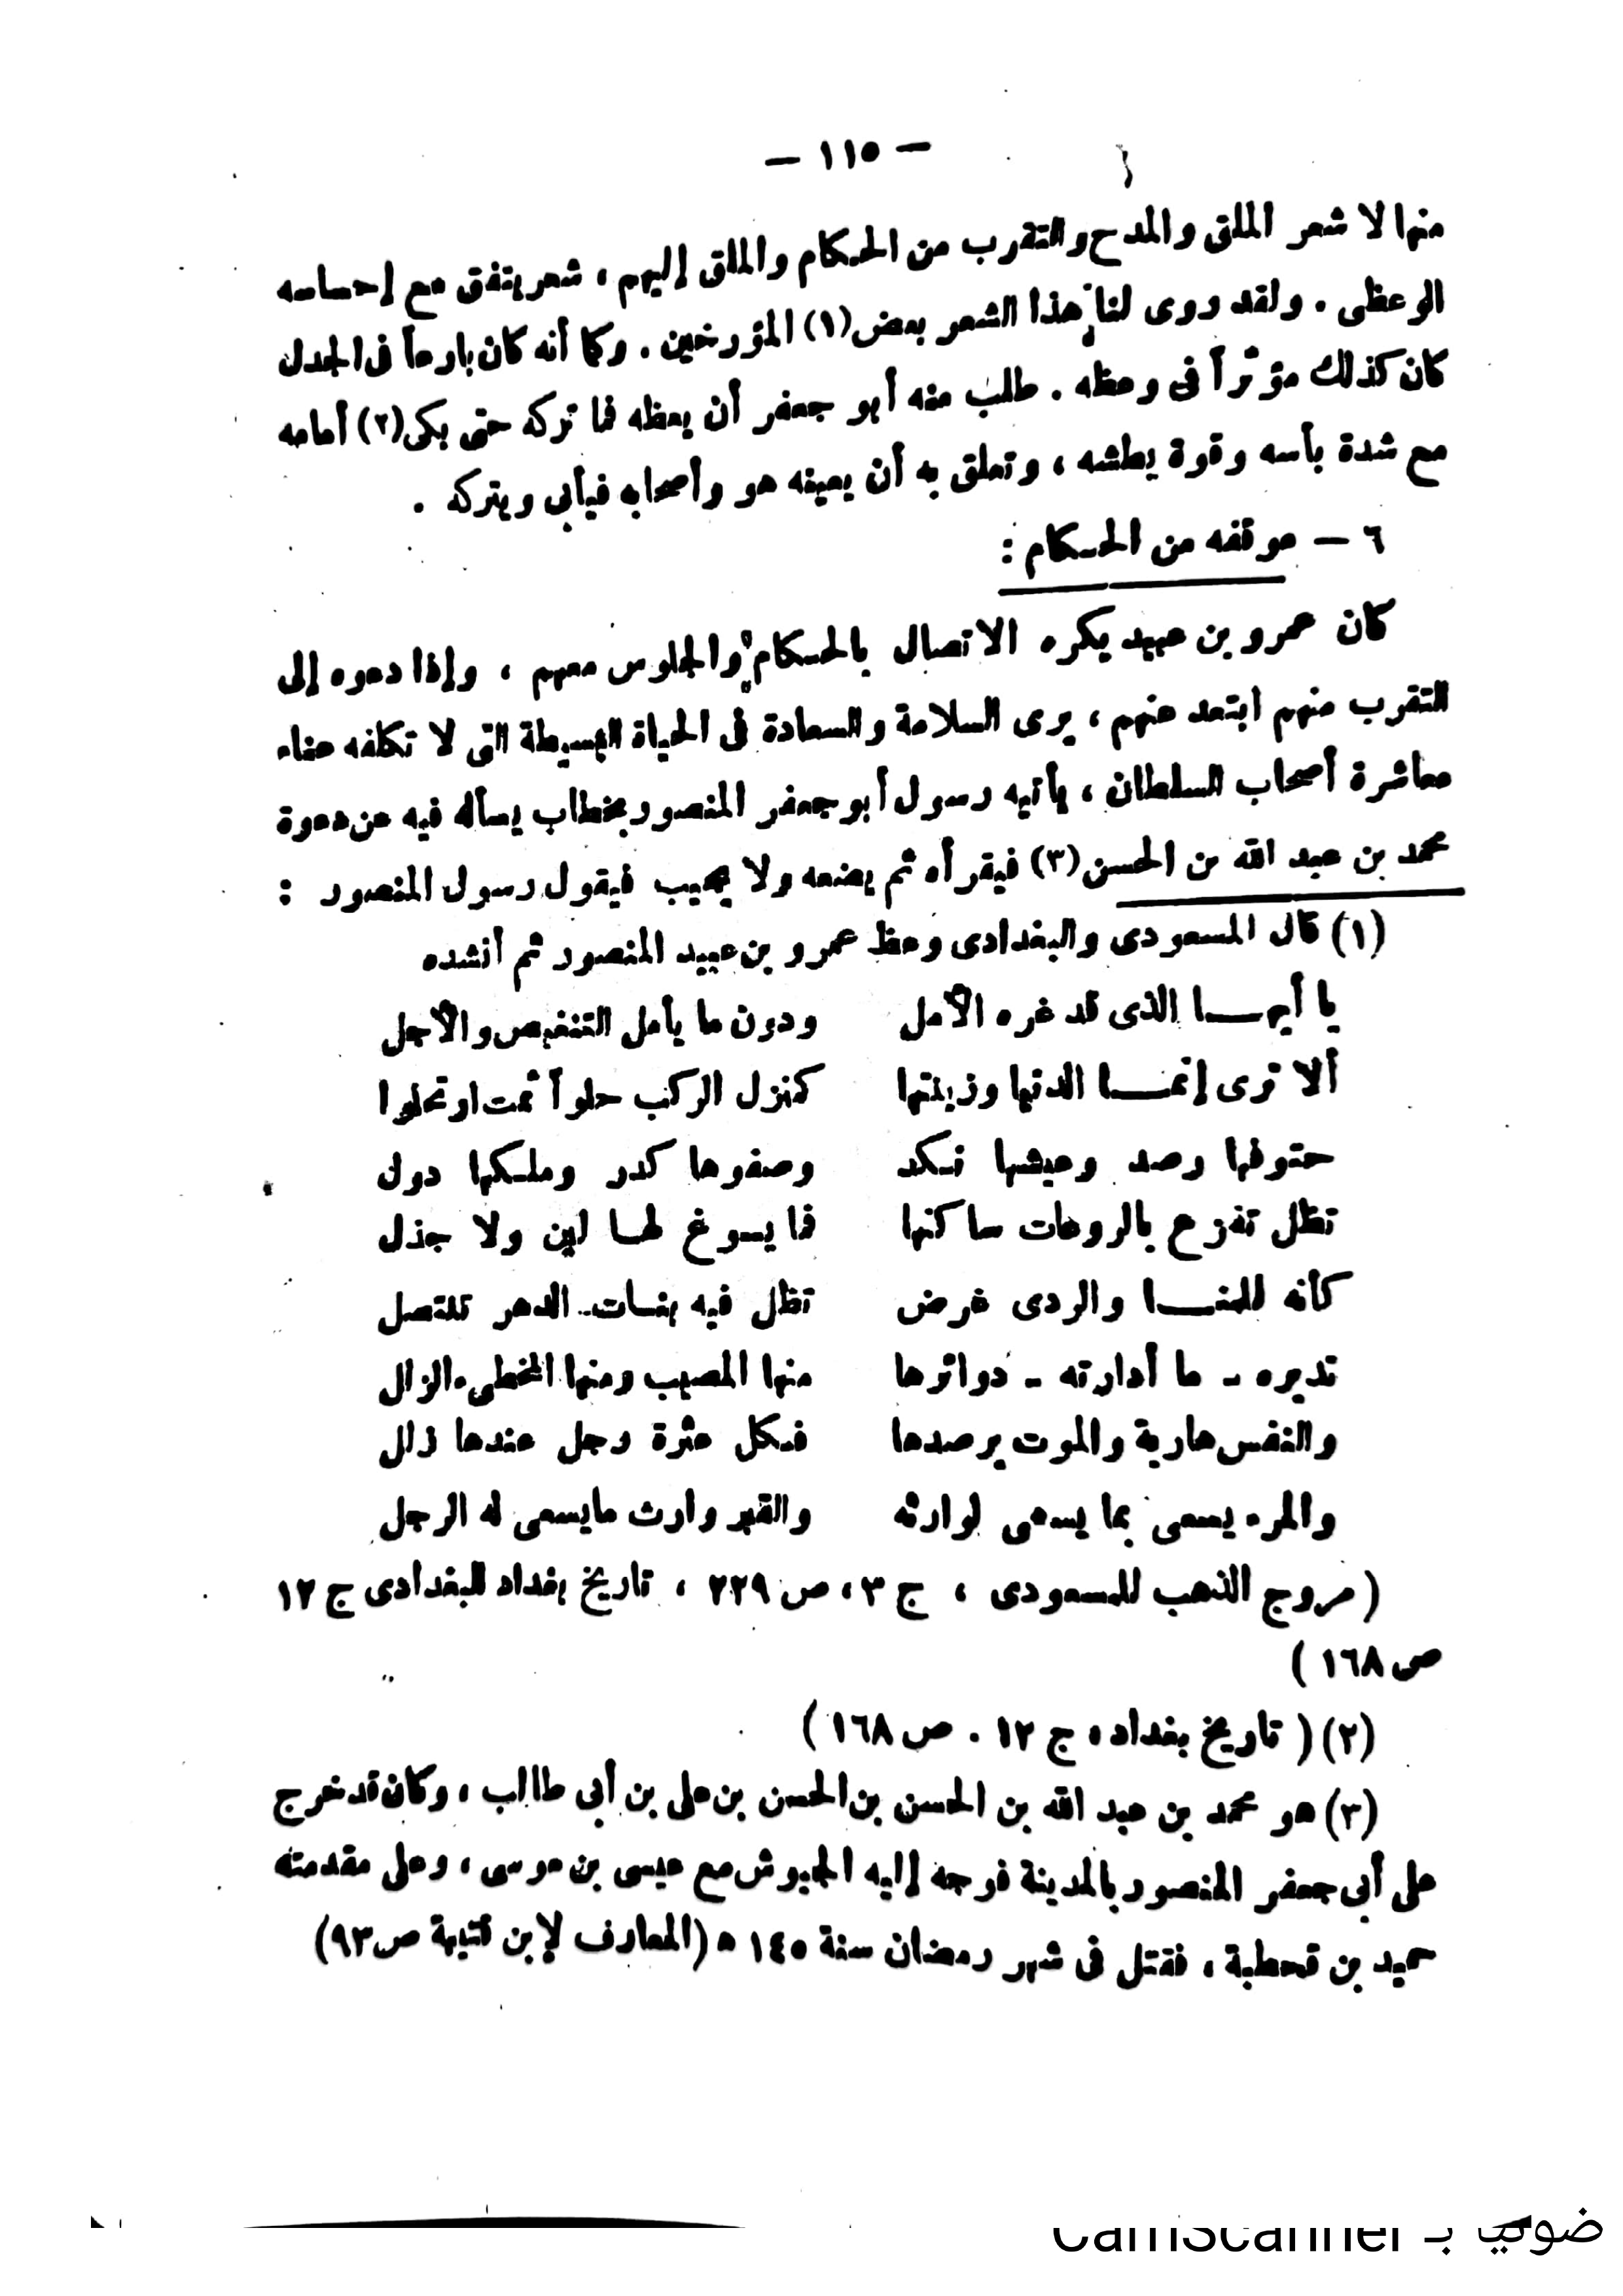 — ١١٥ —
منها لا شعر الملق والمدح والتقرب من الحكام والملق إليهم ، شعر يتفق مع إحساسه
الوعظى . ولقد روى لنا هذا الشعر بعض (١) المؤرخين . وكما أنه كان بارعاً فى الجدل
كان كذلك مؤثراً فى وعظه . طلب منه أبو جعفر أن يعظه فما تركه حتى بكى (٢) أمامه
مع شدة بأسه وقوة بطشه ، وتعلق به أن يعينه هو وأصحابه فيأبى ويتركه .
٦ — موقفه من الحكام :
كان عمرو بن عبيد يكره الاتصال بالحكام والجلوس معهم ، وإذا دعوه إلى
التقرب منهم ابتعد عنهم ، يرى السلامة والسعادة فى الحياة البسيطة التى لا تكلفه عناء
معاشرة أصحاب السلطان ، يأتيه رسول أبو جعفر المنصور بخطاب يسأله فيه عن دعوة
محمد بن عبد الله بن الحسن (٣) فيقرأه ثم يضعه ولا يجيب فيقول رسول المنصور :
(١) قال المسعودى والبغدادى وعظ عمرو بن عبيد المنصور ثم أنشده
يا أيهــا الذى قد غره الأمل ودون ما يأمل التنغيص والأجل
ألا ترى إنمــا الدنيا وزينتها كمنزل الركب حلوا ثمت ارتحلوا
حتوفها رصد وعيشها نكد وصفوها كدر وملكها دول
تظل تفزع بالروعات ساكنها فما يسوغ لها لين ولا جذل
كأنه للمنــا والردى غرض تظل فيه بنات الدهر تنتصل
تديره - ما أدارته - دوائرها منها المصيب ومنها المخطىء الزال
والنفس هاربة والموت يرصدها فكل عثرة رجل عندها زلل
والمرء يسعى بما يسعى لوارثه والقبر وارث مايسعى له الرجل
( مروج الذهب للمسعودى ، ج ٣ ، ص ٢٢٩ ، تاريخ بغداد للبغدادى ج ١٢
ص ١٦٨ )
(٢) ( تاريخ بغداد ، ج ١٢ . ص ١٦٨ )
(٣) هو محمد بن عبد الله بن الحسن بن الحسن بن على بن أبى طالب ، وكان قد خرج
على أبى جعفر المنصور بالمدينة فوجه إليه الجيوش مع عيسى بن موسى ، وعلى مقدمته
حميد بن قحطبة ، فقتل فى شهر رمضان سنة ١٤٥ ه (المعارف لإبن قتيبة ص ٩٣)
ضوئيا بـ CamScanner